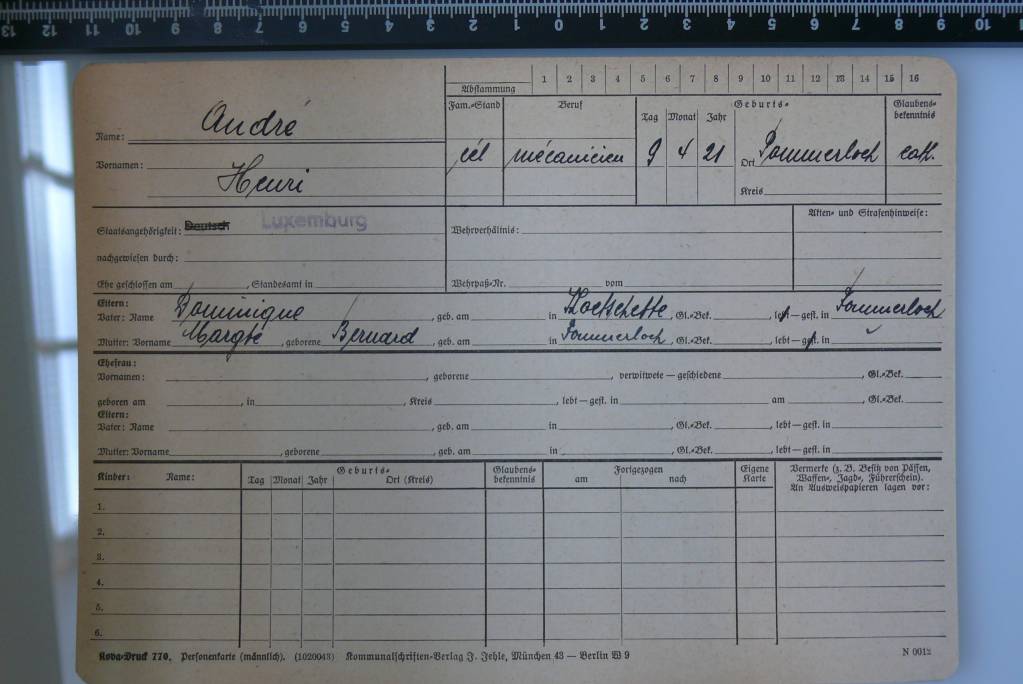 13 12 11 10 9 8 7 6 5 4 3 2 1 0 1 2 3 4 5 6 7 8 9 10
Abstammung 1 2 3 4 5 6 7 8 9 10 11 12 13 14 15 16
Fam.-Stand Beruf Geburts- Glaubens-
Tag Monat Jahr bekenntnis
Name: André
cél mécanicien 9 4 21 Ort Pommerloch cath.
Vornamen: Henri
Kreis
Staatsangehörigkeit: Deutsch Luxemburg Wehrverhältnis: Akten- und Strafenhinweise:
nachgewiesen durch:
Ehe geschlossen am , Standesamt in Wehrpaß-Nr. vom
Eltern:
Vater: Name Dominique , geb. am in Koetschette , Gl.-Bek. , lebt—gest. in Pommerloch
Mutter: Vorname Margte , geborene Bernard , geb. am in Pommerloch , Gl.-Bek. , lebt—gest. in
Ehefrau:
Vornamen: , geborene , verwitwete — geschiedene , Gl.-Bek.
geboren am , in , Kreis , lebt—gest. in am , Gl.-Bek.
Eltern:
Vater: Name , geb. am in , Gl.-Bek. , lebt—gest. in
Mutter: Vorname , geborene , geb. am in , Gl.-Bek. , lebt—gest. in
Kinder: Name: Geburts- Glaubens- Fortgezogen Eigene Vermerke (z. B. Besitz von Pässen,
Tag Monat Jahr Ort (Kreis) bekenntnis am nach Karte Waffen-, Jagd-, Führerschein).
An Ausweispapieren lagen vor:
1.
2.
3.
4.
5.
6.
Kova-Druck 770. Personenkarte (männlich). (1020043) Kommunalschriften-Verlag J. Jehle, München 43 — Berlin W 9 N 0012